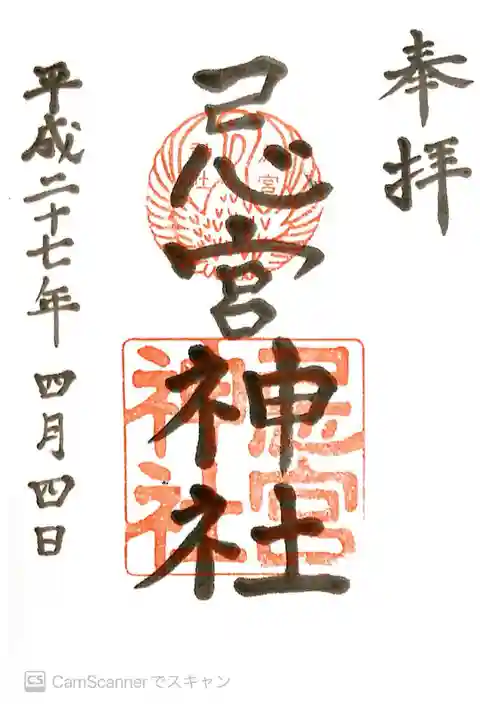 奉拝
忌宮神社
忌宮
神社
平成二十七年 四月四日
CS CamScannerでスキャン